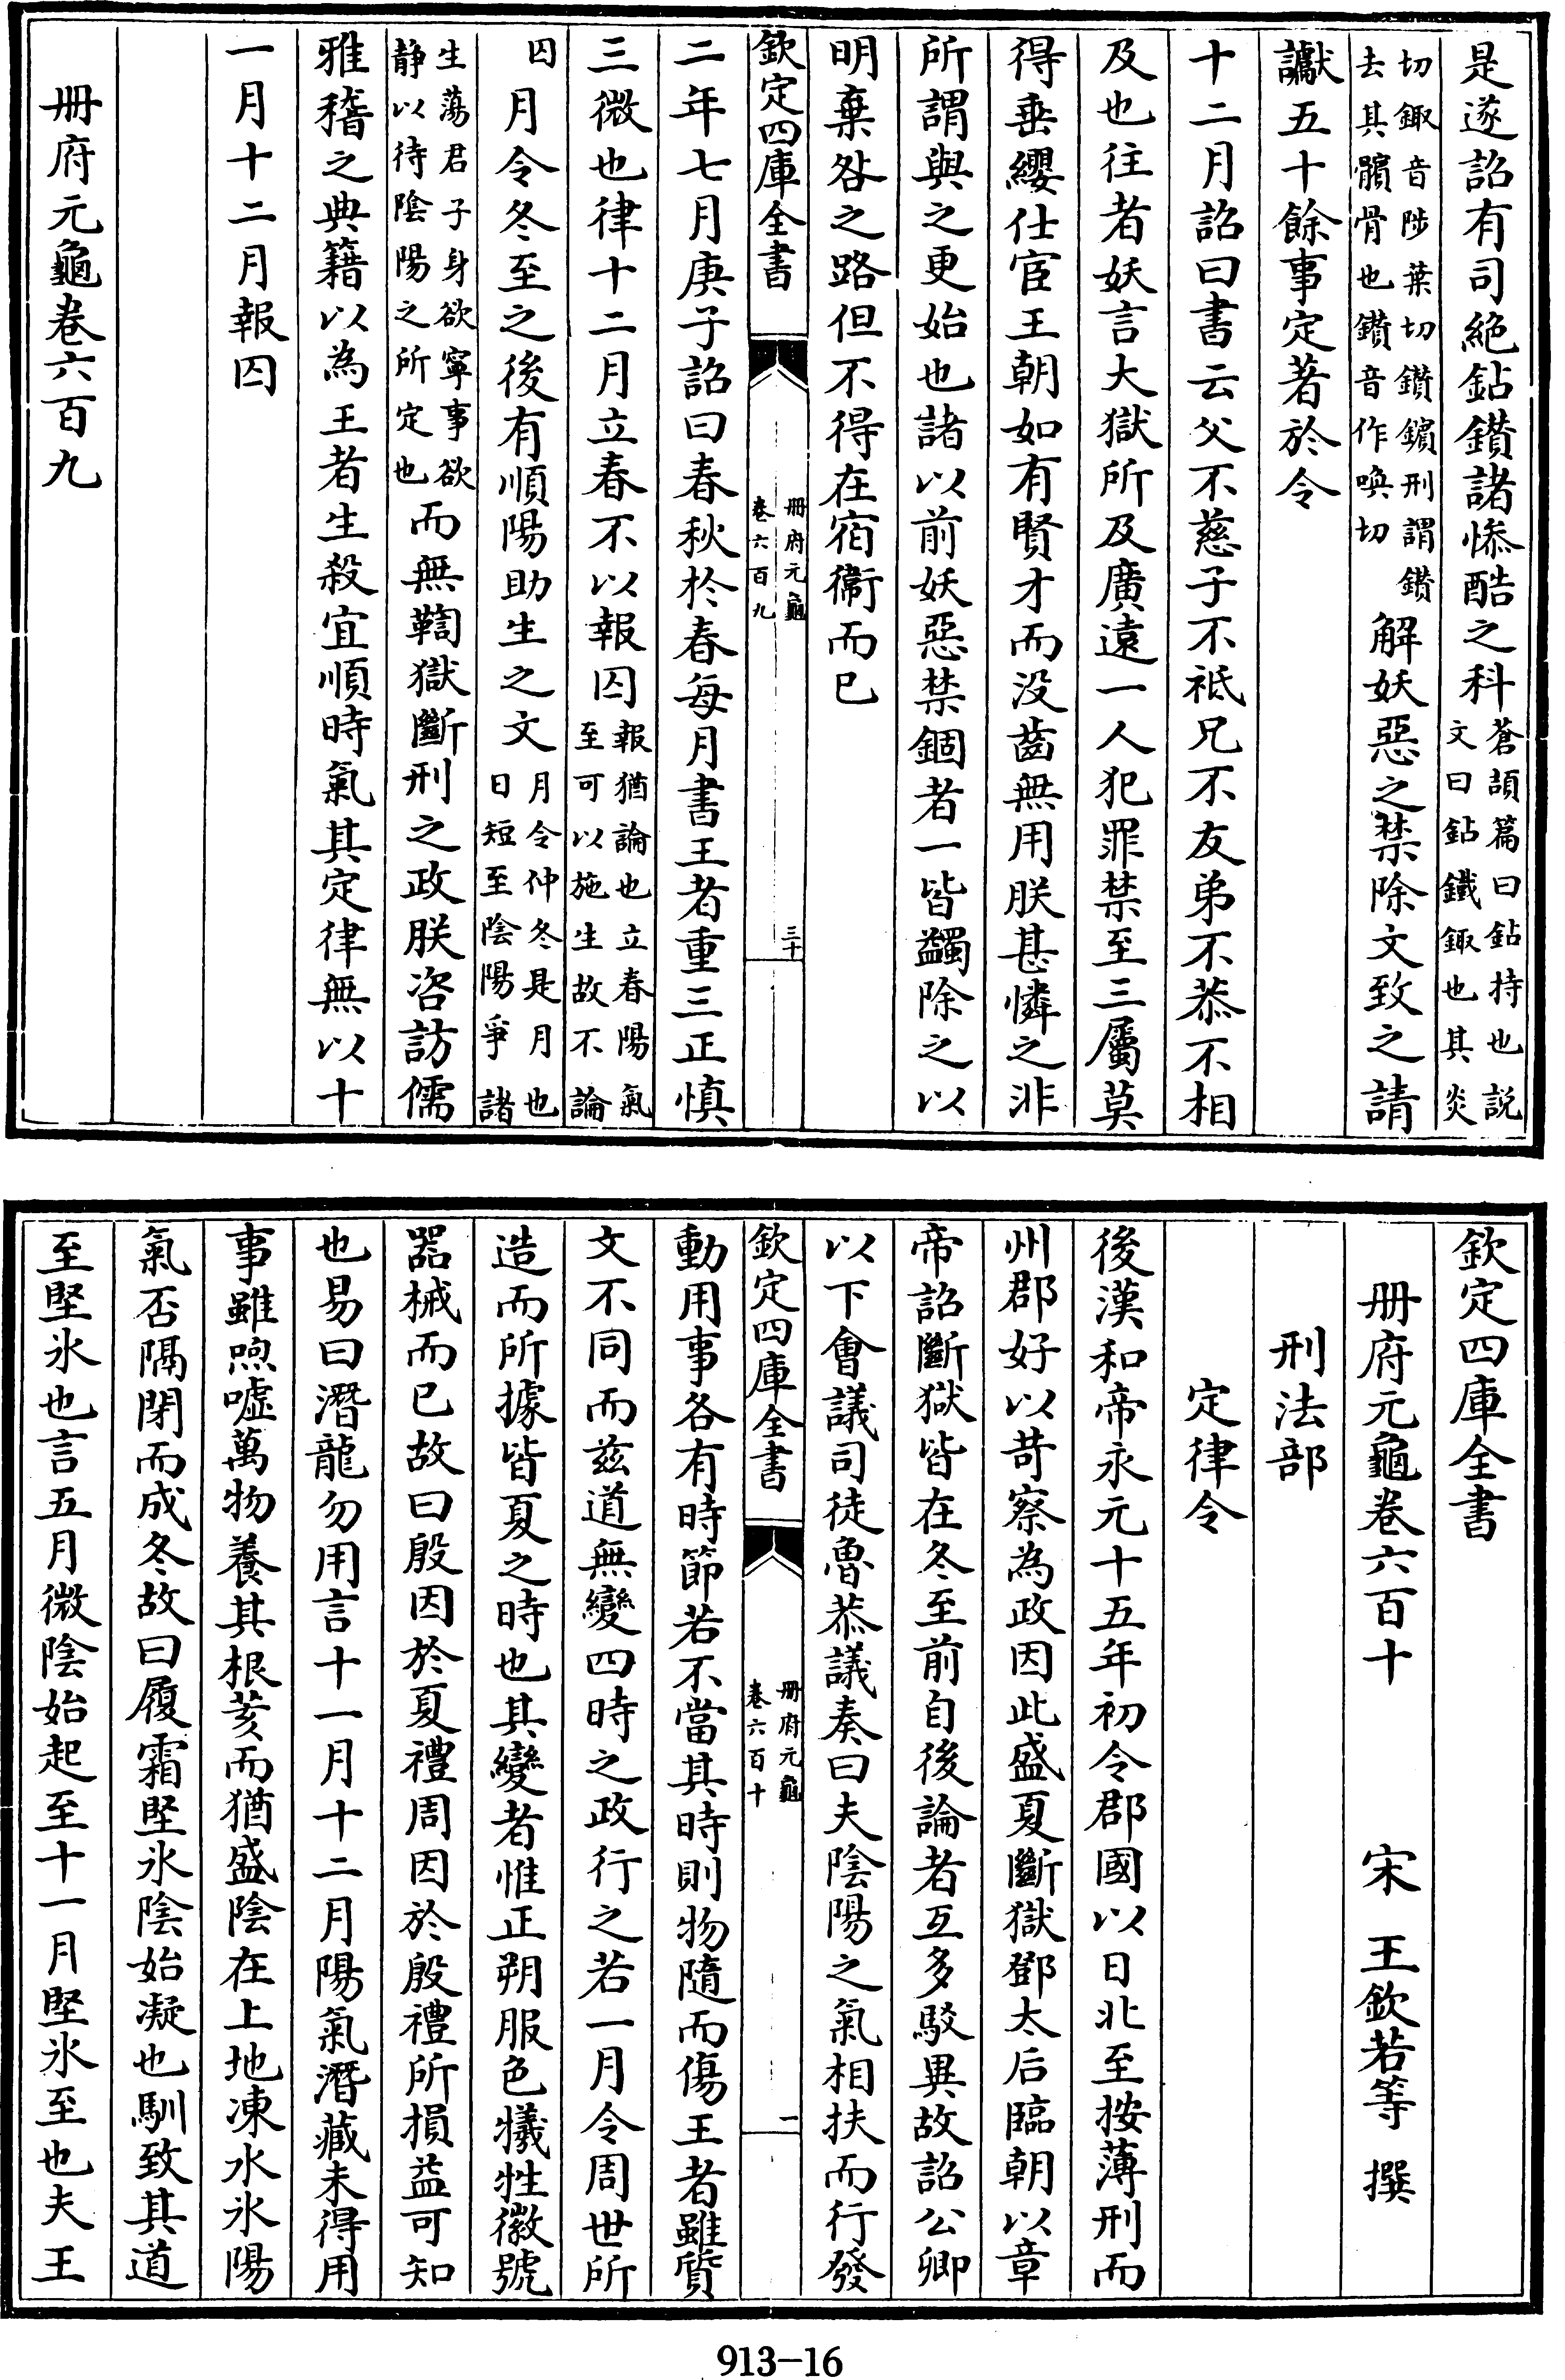 是遂詔有司絶鉆鑚諸慘酷之科蒼頡篇曰鉆持也説文曰鉆鐵鋷也其炎
切鋷音陟葉切鑚鑌刑謂鑚去其髕骨也鑚音作喚切解妖惡之禁除文致之請
讞五十餘事定著於令
十二月詔曰書云父不慈子不祗兄不友弟不恭不相
及也往者妖言大獄所及廣遠一人犯罪禁至三屬莫
得垂纓仕宦王朝如有賢才而没齒無用朕甚憐之非
所謂與之更始也諸以前妖惡禁錮者一皆蠲除之以
明棄咎之路但不得在宿衞而已
欽定四庫全書 冊府元龜卷六百九 三十
二年七月庚子詔曰春秋於春每月書王者重三正慎
三微也律十二月立春不以報囚報猶論也立春陽氣至可以施生故不論
囚月令冬至之後有順陽助生之文月令仲冬是月也日短至陰陽爭諸
生蕩君子身欲寧事欲静以待陰陽之所定也而無鞫獄斷刑之政朕咨訪儒
雅稽之典籍以為王者生殺宜順時氣其定律無以十
一月十二月報囚
冊府元龜卷六百九
欽定四庫全書
冊府元龜卷六百十 宋 王欽若等 撰
刑法部
定律令
後漢和帝永元十五年初令郡國以日北至按薄刑而
州郡好以苛察為政因此盛夏斷獄鄧太后臨朝以章
帝詔斷獄皆在冬至前自後論者互多駁異故詔公卿
以下會議司徒魯恭議奏曰夫陰陽之氣相扶而行發
欽定四庫全書 冊府元龜卷六百十 一
動用事各有時節若不當其時則物隨而傷王者雖質
文不同而兹道無變四時之政行之若一月令周世所
造而所據皆夏之時也其變者惟正朔服色犧牲徽號
器械而已故曰殷因於夏禮周因於殷禮所損益可知
也易曰潛龍勿用言十一月十二月陽氣潛藏未得用
事雖喣嘘萬物養其根荄而猶盛陰在上地凍水氷陽
氣否隔閉而成冬故曰履霜堅氷陰始凝也馴致其道
至堅氷也言五月微陰始起至十一月堅氷至也夫王
913-16